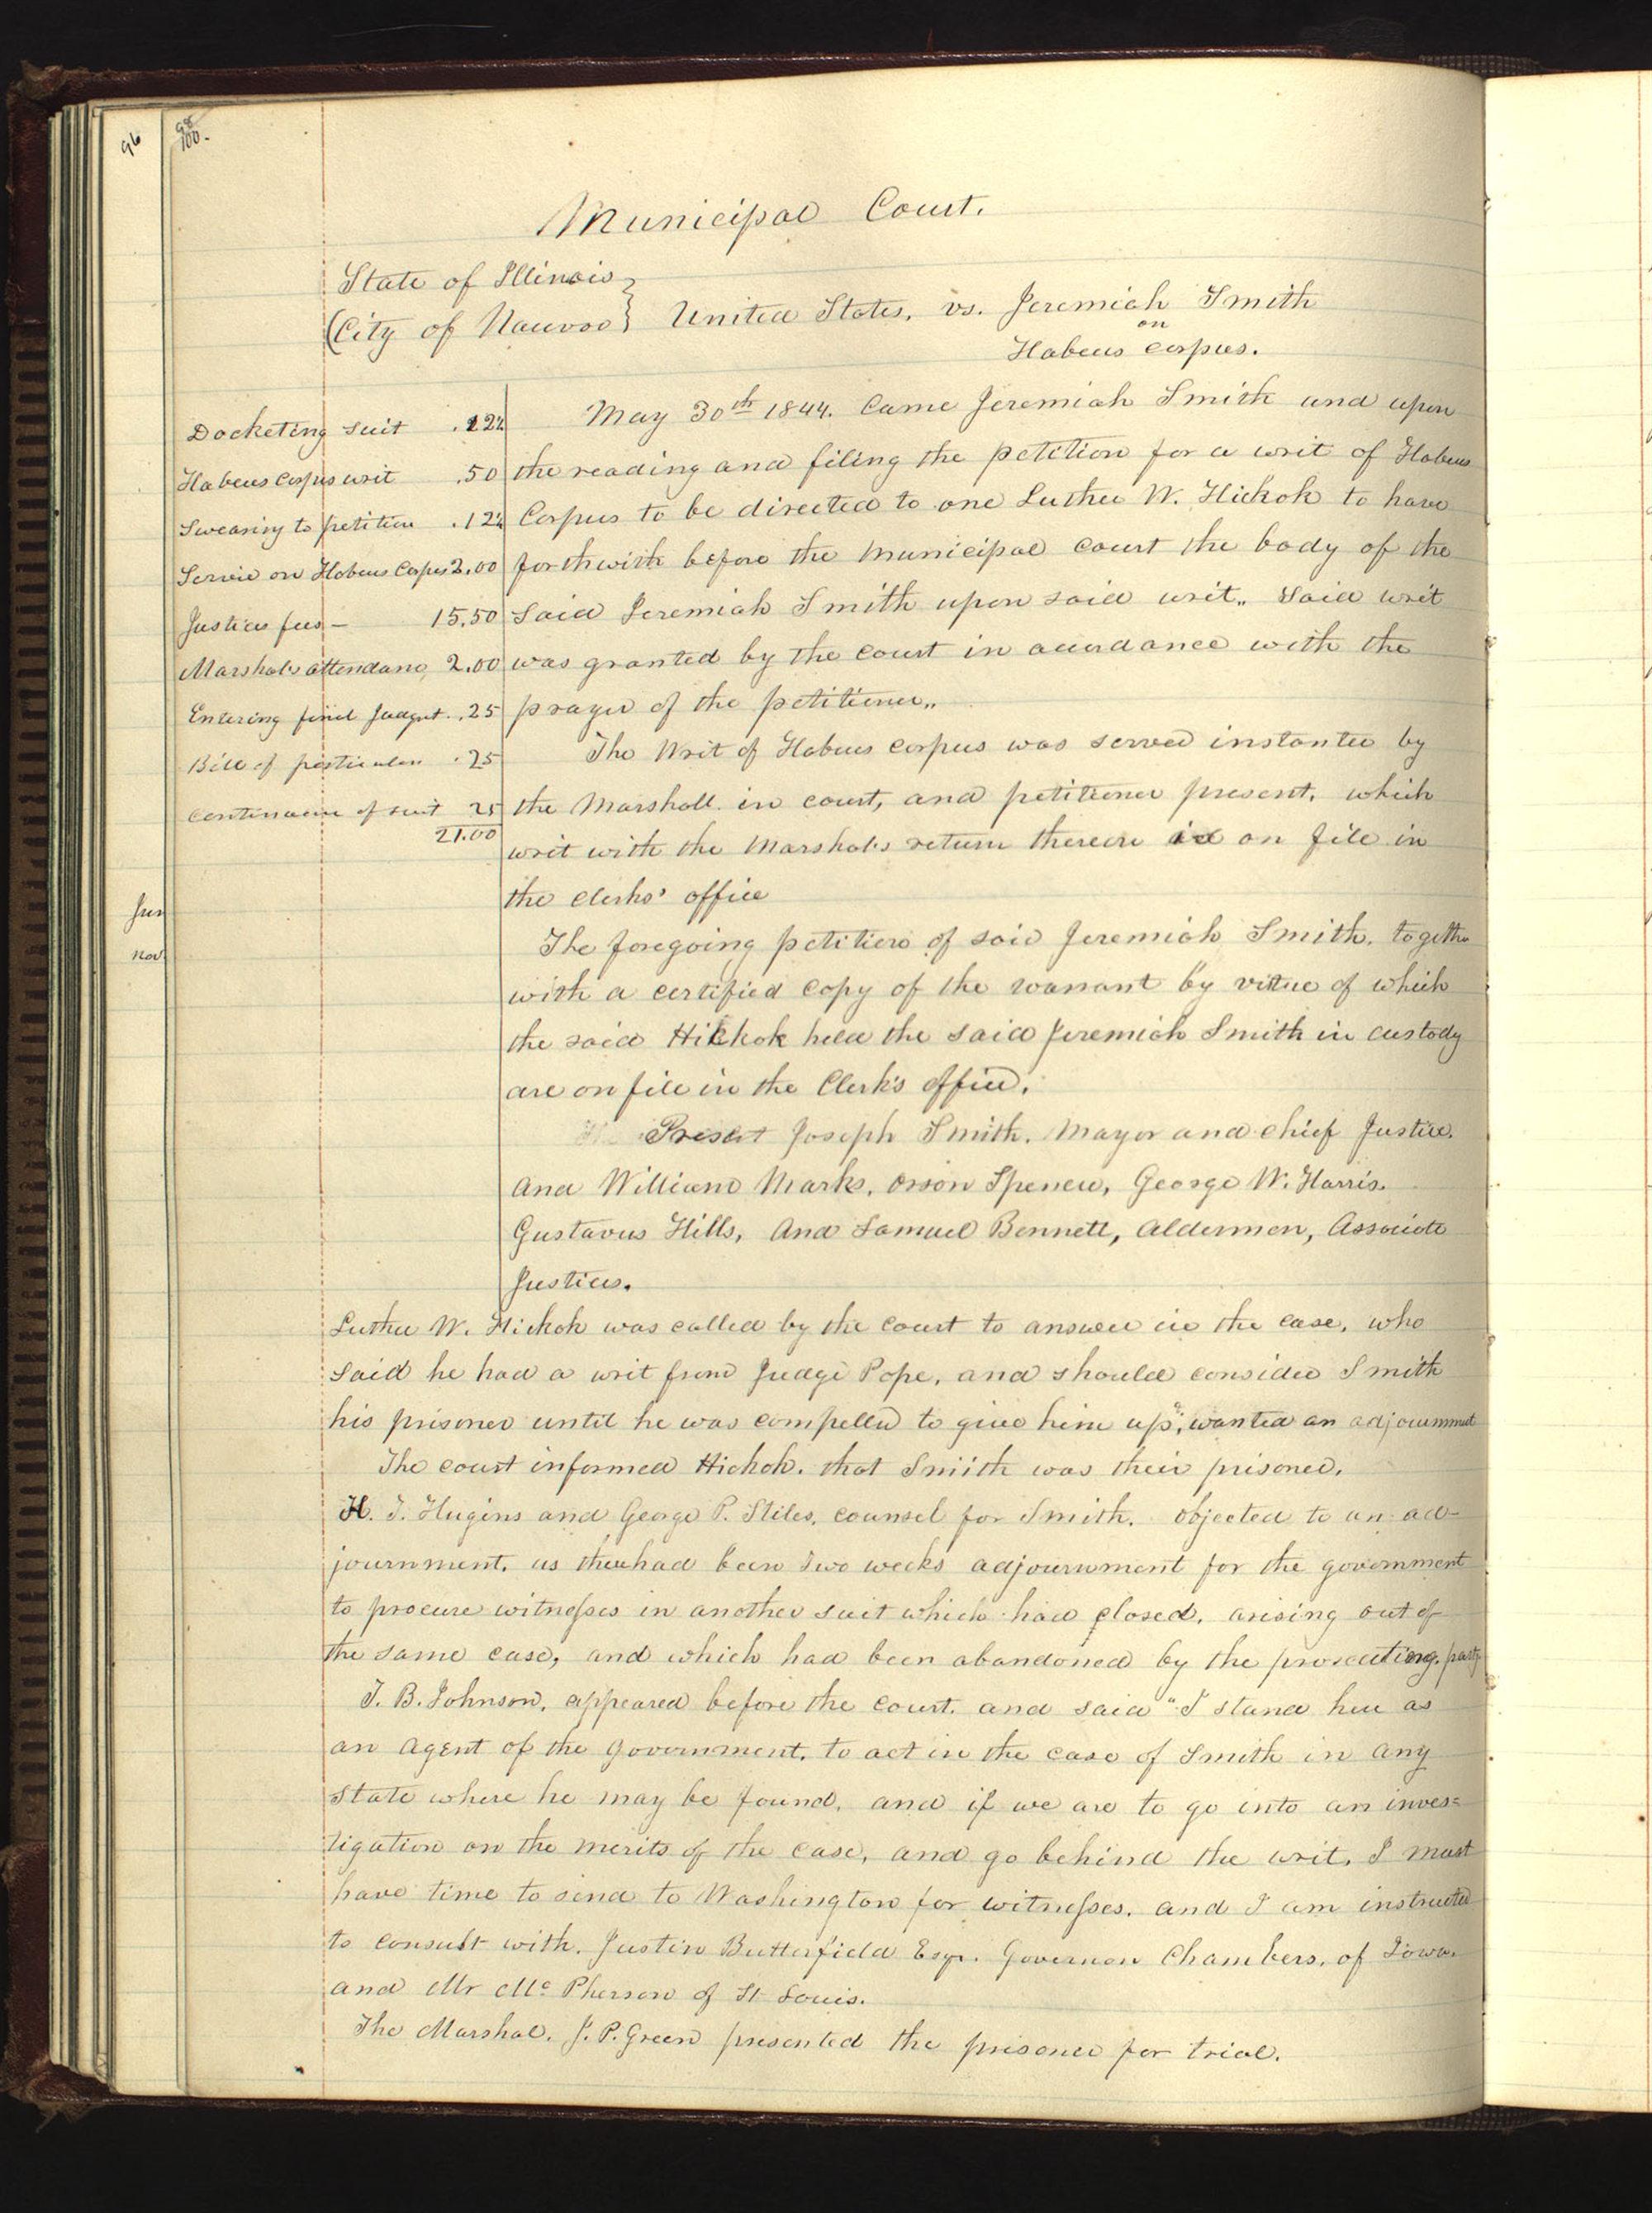 96
98
100.
Municipal Court.
State of Illinois
City of Nauvoo } United States, vs. Jeremiah Smith
on
Habeus corpus.
Docketing suit .12½
Habeus Corpus writ .50
Swearing to petition .12½
Servic on Habeus Corpus 2.00
Justices fees — 15.50
Marshals attendanc 2.00
Entering finel Judgnt. .25
Bill of particulars .25
Continuance of suit 25
21.00
May 30th 1844. Came Jeremiah Smith and upon
the reading and filing the petition for a writ of Habeus
Corpus to be directed to one Luther W. Hickok to have
forthwith before the Municipal Court the body of the
said Jeremiah Smith upon said writ„ Said writ
was granted by the court in accordance with the
prayer of the petitioner„
The Writ of Habeus corpus was served instanter by
the Marshall in court, and petitioner present, which
writ with the Marshals return thereon is on file in
the clerks' office
The foregoing petition of said Jeremiah Smith. togethr
with a certified copy of the warrant by virtue of which
the said Hickok held the said Jeremiah Smith in custody
are on file in the Clerk's office.
Present Joseph Smith. Mayor and chief Justice.
And William Marks, Orson Spencer, George W. Harris.
Gustavus Hills, And Samuel Bennett, Aldermen, Associate
Justices.
Jun
Nov.
Luther W. Hickok was called by the court to answer in the case, who
said he had a writ from Judge Pope, and should consider Smith
his prisoner until he was compelled to give him up", wanted an adjournmnt
The court informed Hickok. that Smith was their prisoner.
H. T. Hugins and George P. Stiles, counsel for Smith. objected to an ad-
journment, as there had been two weeks adjournment for the government
to procure witnesses in another suit which had closed, arising out of
the same case, and which had been abandoned by the prosecuting. party
T. B. Johnson, appeared before the court. and said "I stand here as
an agent of the government, to act in the case of Smith in any
state where he may be found, and if we are to go into an inves=
tigation on the merits of the case, and go behind the writ, I must
have time to send to Washington for witnesses, and I am instructed
to consult with. Justin Butterfield Esqr. Governor Chambers, of Iowa.
and Mr McPherson of St Louis.
The Marshal. J. P. Green presented the prisoner for trial.